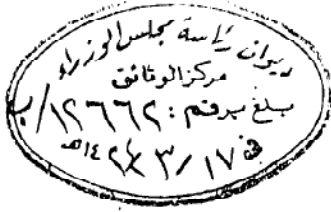 ديوان رئاسة مجلس الوزراء
مركز الوثائق
بلغ برقم : ١٢٦٦٢/ب
في ١٧/٣/ ١٤هـ